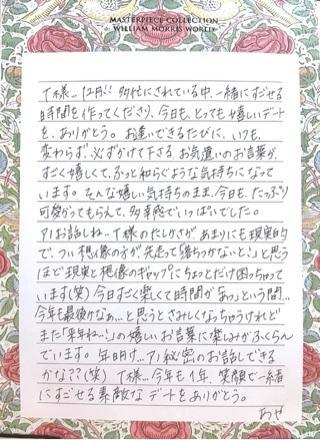 MASTERPIECE COLLECTION
WILLIAM MORRIS WORLD
T様… 12月!! 多忙にされている中、一緒にすごせる
時間を作ってくださり、今日も、とっても嬉しいデート
を、ありがとう。お逢いできるたびに、いつも、
変わらず、必ずかけて下さる お気遣いのお言葉が、
すごく嬉しくて、ふっと和らぐような気持ちになって
います。そんな嬉しい気持ちのまま、今日も、たっぷり
可愛がってもらえて、多幸感でいっぱいでした。
お話しね… T様の たしかさが あまりにも現実的
で、つい想像の方が先走って落ちつかないと!と思う
ほど現実と想像のギャップにちょっとだけ困っちゃって
います(笑) 今日すごく楽しくて時間があっという間…
今年も最後かなぁ…と思うとさみしくなっちゃうけれど
また「来年ね…!」の嬉しいお言葉に楽しみがふくらん
でいます。年明け… 秘密のお話しできる
かな??(笑) T様…今年も1年、笑顔で一緒
にすごせる素敵なデートをありがとう。
あや